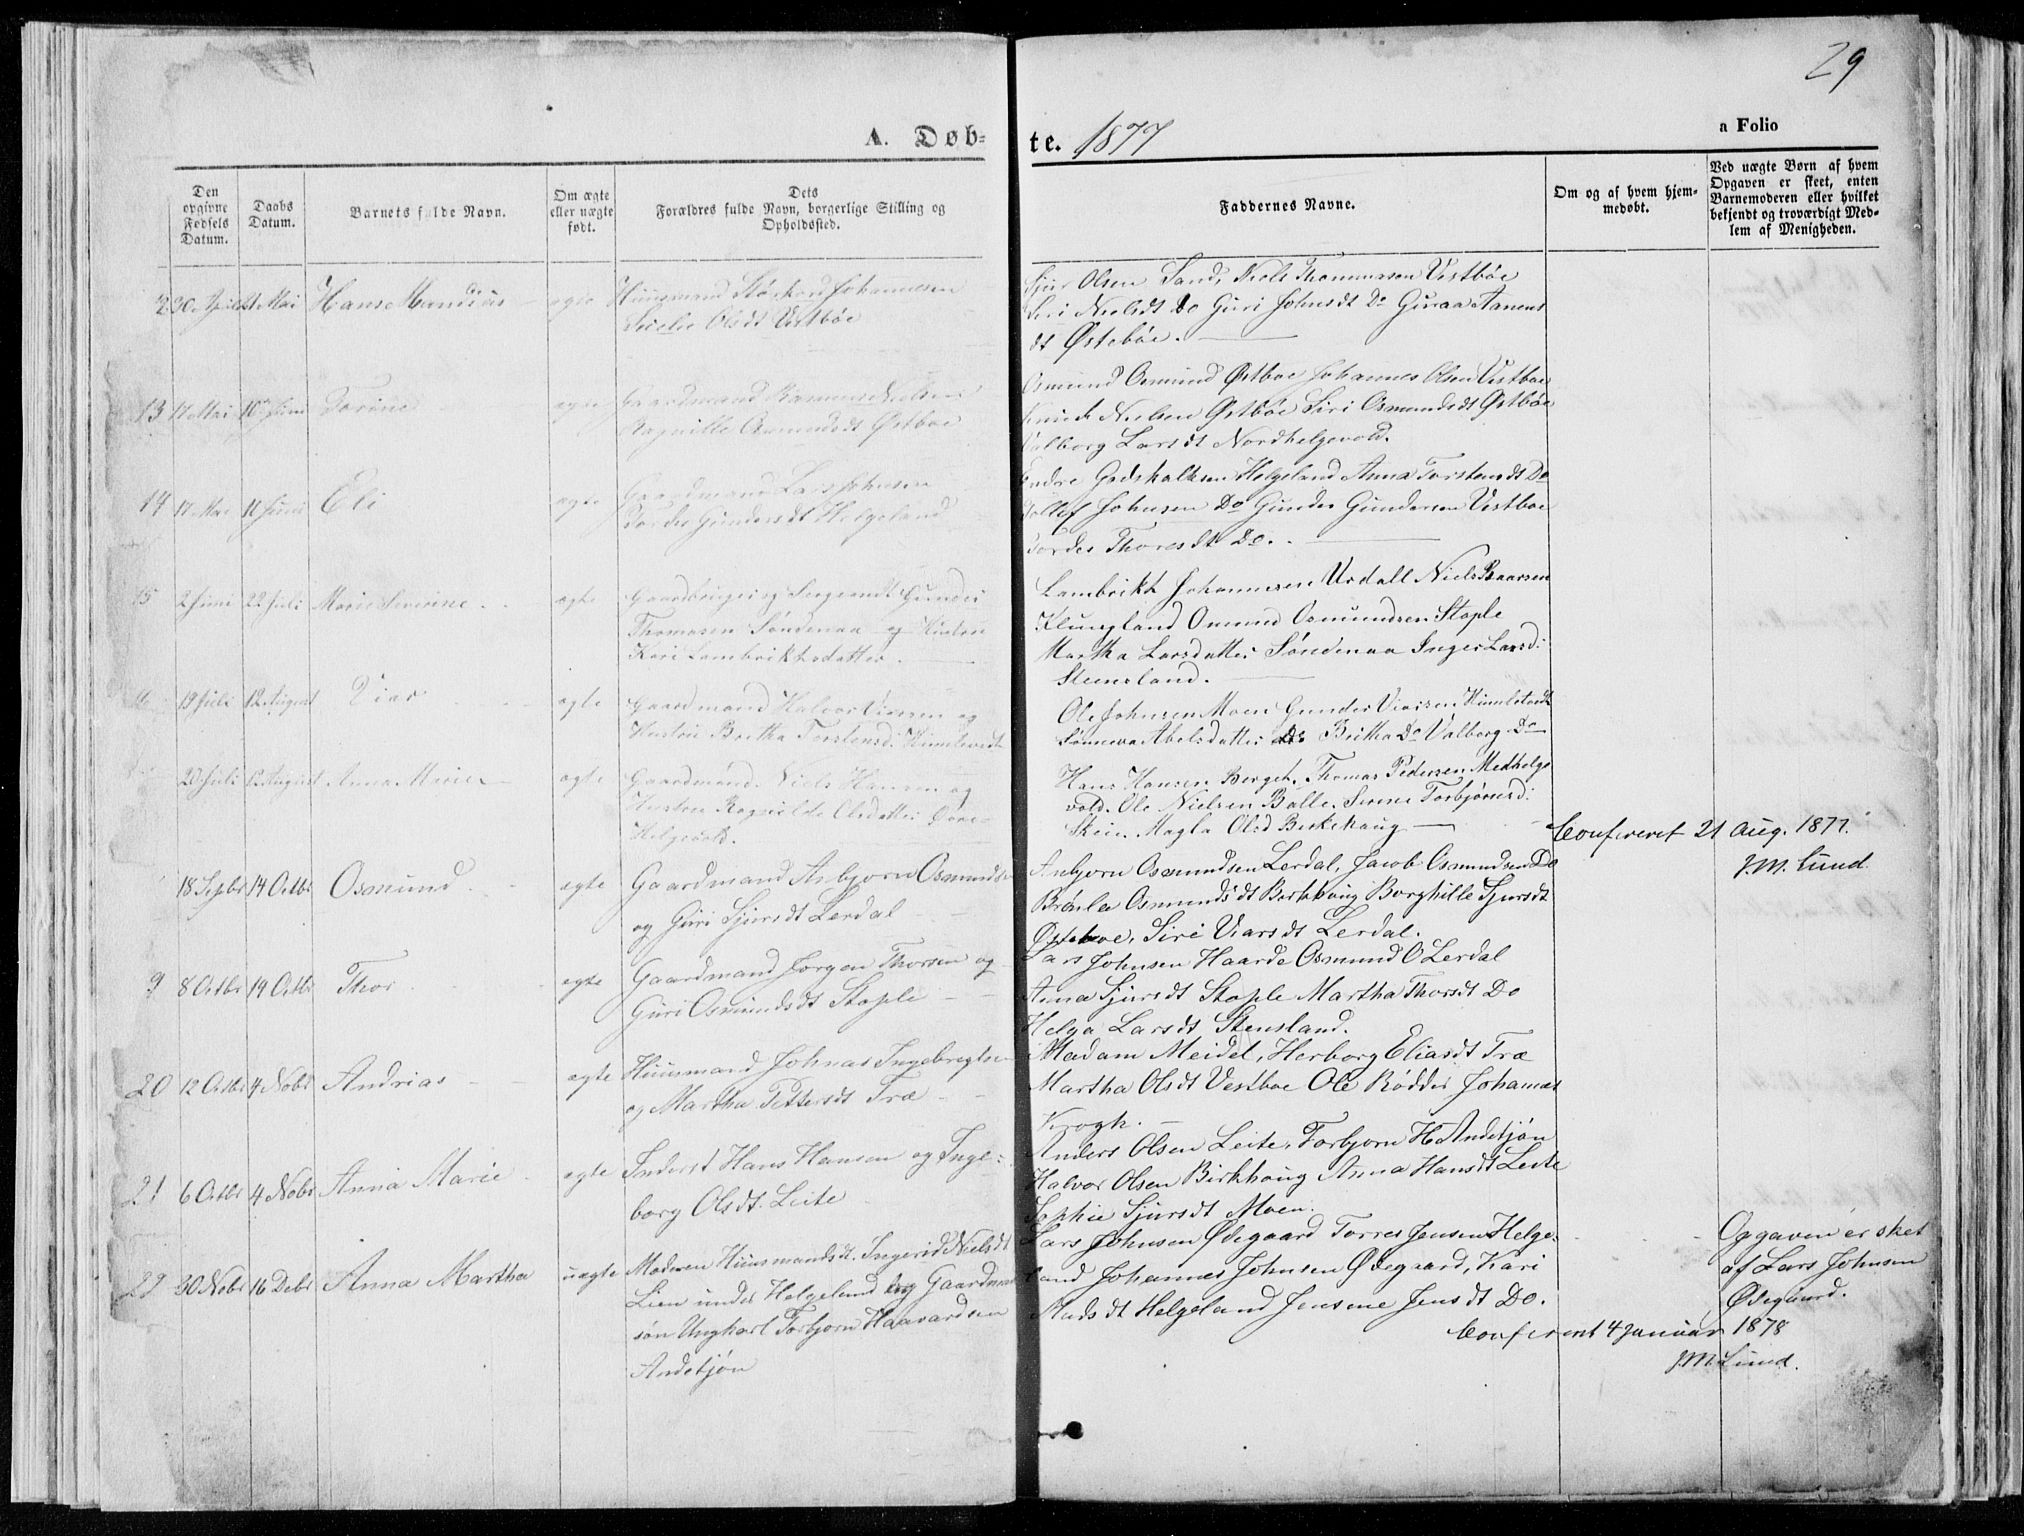 29
A. Døb-
te. 1877
a Folio
Den opgivne Fødsels Datum.
Daabs Datum.
Barnets fulde Navn.
Om ægte eller uægte født.
Dets Forældres fulde Navn, borgerlige Stilling og Opholdssted.
Faddernes Navne.
Om og af hvem hjem-
medøbt.
Ved uægte Børn af hvem
Opgaven er skeet, enten
Barnemoderen eller hvilket
bekjendt og troværdigt Med-
lem af Menigheden.
30 April Mai Hans Mandius ægte Huusmand Johannesen
Olsdt Vestbøe
Sjur Olsen Sand, Niels Thommassen Vestbøe
Siri Nielsdt Do Guri Johnsdt Do Guraa Aanens
dt Østebøe.
13 17 Mai 10 Juni Torine ægte Gaardmand Rasmus Nielsen
Ragnille Osmundsdt Østboe
Osmund Osmund Østboe Johannes Olsen Vestboe
Knud Nielsen Østbøe Siri Osmundsdt Østbøe
Valborg Larsdt Nordhelgevold.
14 17 Mai Juni Eli ægte Gaardmand Lars Johnsen
Tordes Gundersdt Helgeland
Endre Godskalksen Helgeland Anna Torstensdt Do
Tollef Johnsen Do Gunder Gundersen Vestboe
Tordes Thoresdt Do.
15 2 Juni 22 Juli Marie Severine ægte Gaardbruger og Sergeandt Gunder
Thomasen Søndenaa og Hustru
Kari Lambrikhsdatter.
Lambrikt Johannesen Urdall Niels Baarsen
Klungland Omund Osmundsen Stople
Martha Larsdatter Søndenaa Inger Larsd:
Steensland.
19 Juli 12 August Viar ægte Gaardmand Halvor Viarsen og
Hustru Britha Torstensd. Himlestvedt
Ole Johnsen Moen Gunder Viarsen
Sønneva Abelsdatter Do Britha Do Valborg Do
20 Juli 12 August Anna Marie ægte Gaardmand Niels Hansen og
Hustru Ragnilde Olsdatter
Helgevold.
Hans Hansen Berget, Thomas Pedersen Medhelge
vold. Ole Nielsen Balle. Serine Torbjørnsd:
Skeie. Magla Olsd Birkehaug
Confereret 21 Aug. 1877.
J.M. Lund.
18 Septbr 14 Octbr Osmund ægte Gaardmand Asbjorn Osmundsen
og Guri Sjursdt Lerdal
Asbjorn Osmundsen Lerdal, Jacob Osmundsen Do
Brønla Osmundsdt Birkhoug Borghille Sjursdt
Østeboe, Siri Viarsdt Lerdal.
9 8 Octbr 14 Octbr Thor ægte Gaardmand Jorgen Thorsen og
Guri Osmundsdt Stople
Lars Johnsen Haarde Osmund O Lerdal
Anna Sjursdt Stople Martha Thorsdt Do
Helga Larsdt Stensland.
20 12 Octbr 4 Nobr Andrias ægte Huusmand Johnas Ingebregtsen
og Martha Pettersdt Træ
Madam Meidel, Herborg Eliasdt Træ
Martha Olsdt Vestboe Ole Rødder Johannes
Krogh.
21 6 Octbr 4 Nobr Anna Marie ægte Inderst Hans Hansen og Inge-
borg Olsdt. Leite
Anders Olsen Leite, Torbjorn H Andetjøn
Halvor Olsen Birkhoug Anna Hansdt Leite
Sophie Sjursdt Moen.
22 30 Nobr 16 Debr Anna Martha uægte Moderen Huusmandsdt. Ingerid Nielsdt
Lien under Helgeland og Gaardman
søn Ungkarl Torbjorn Haavardsen
Andetjøn
Lars Johnsen Ødegaard Torres Jensen Helge-
land Johannes Johnsen Ødegaard, Kari
Madsdt Helgeland Jensine Jensdt Do.
Opgaven er sket
af Lars Johnsen
Ødegaard.
Conferent 4 Januar 1878
J.M. Lund.